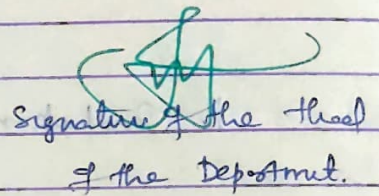 Signature of the Head
of the Department.